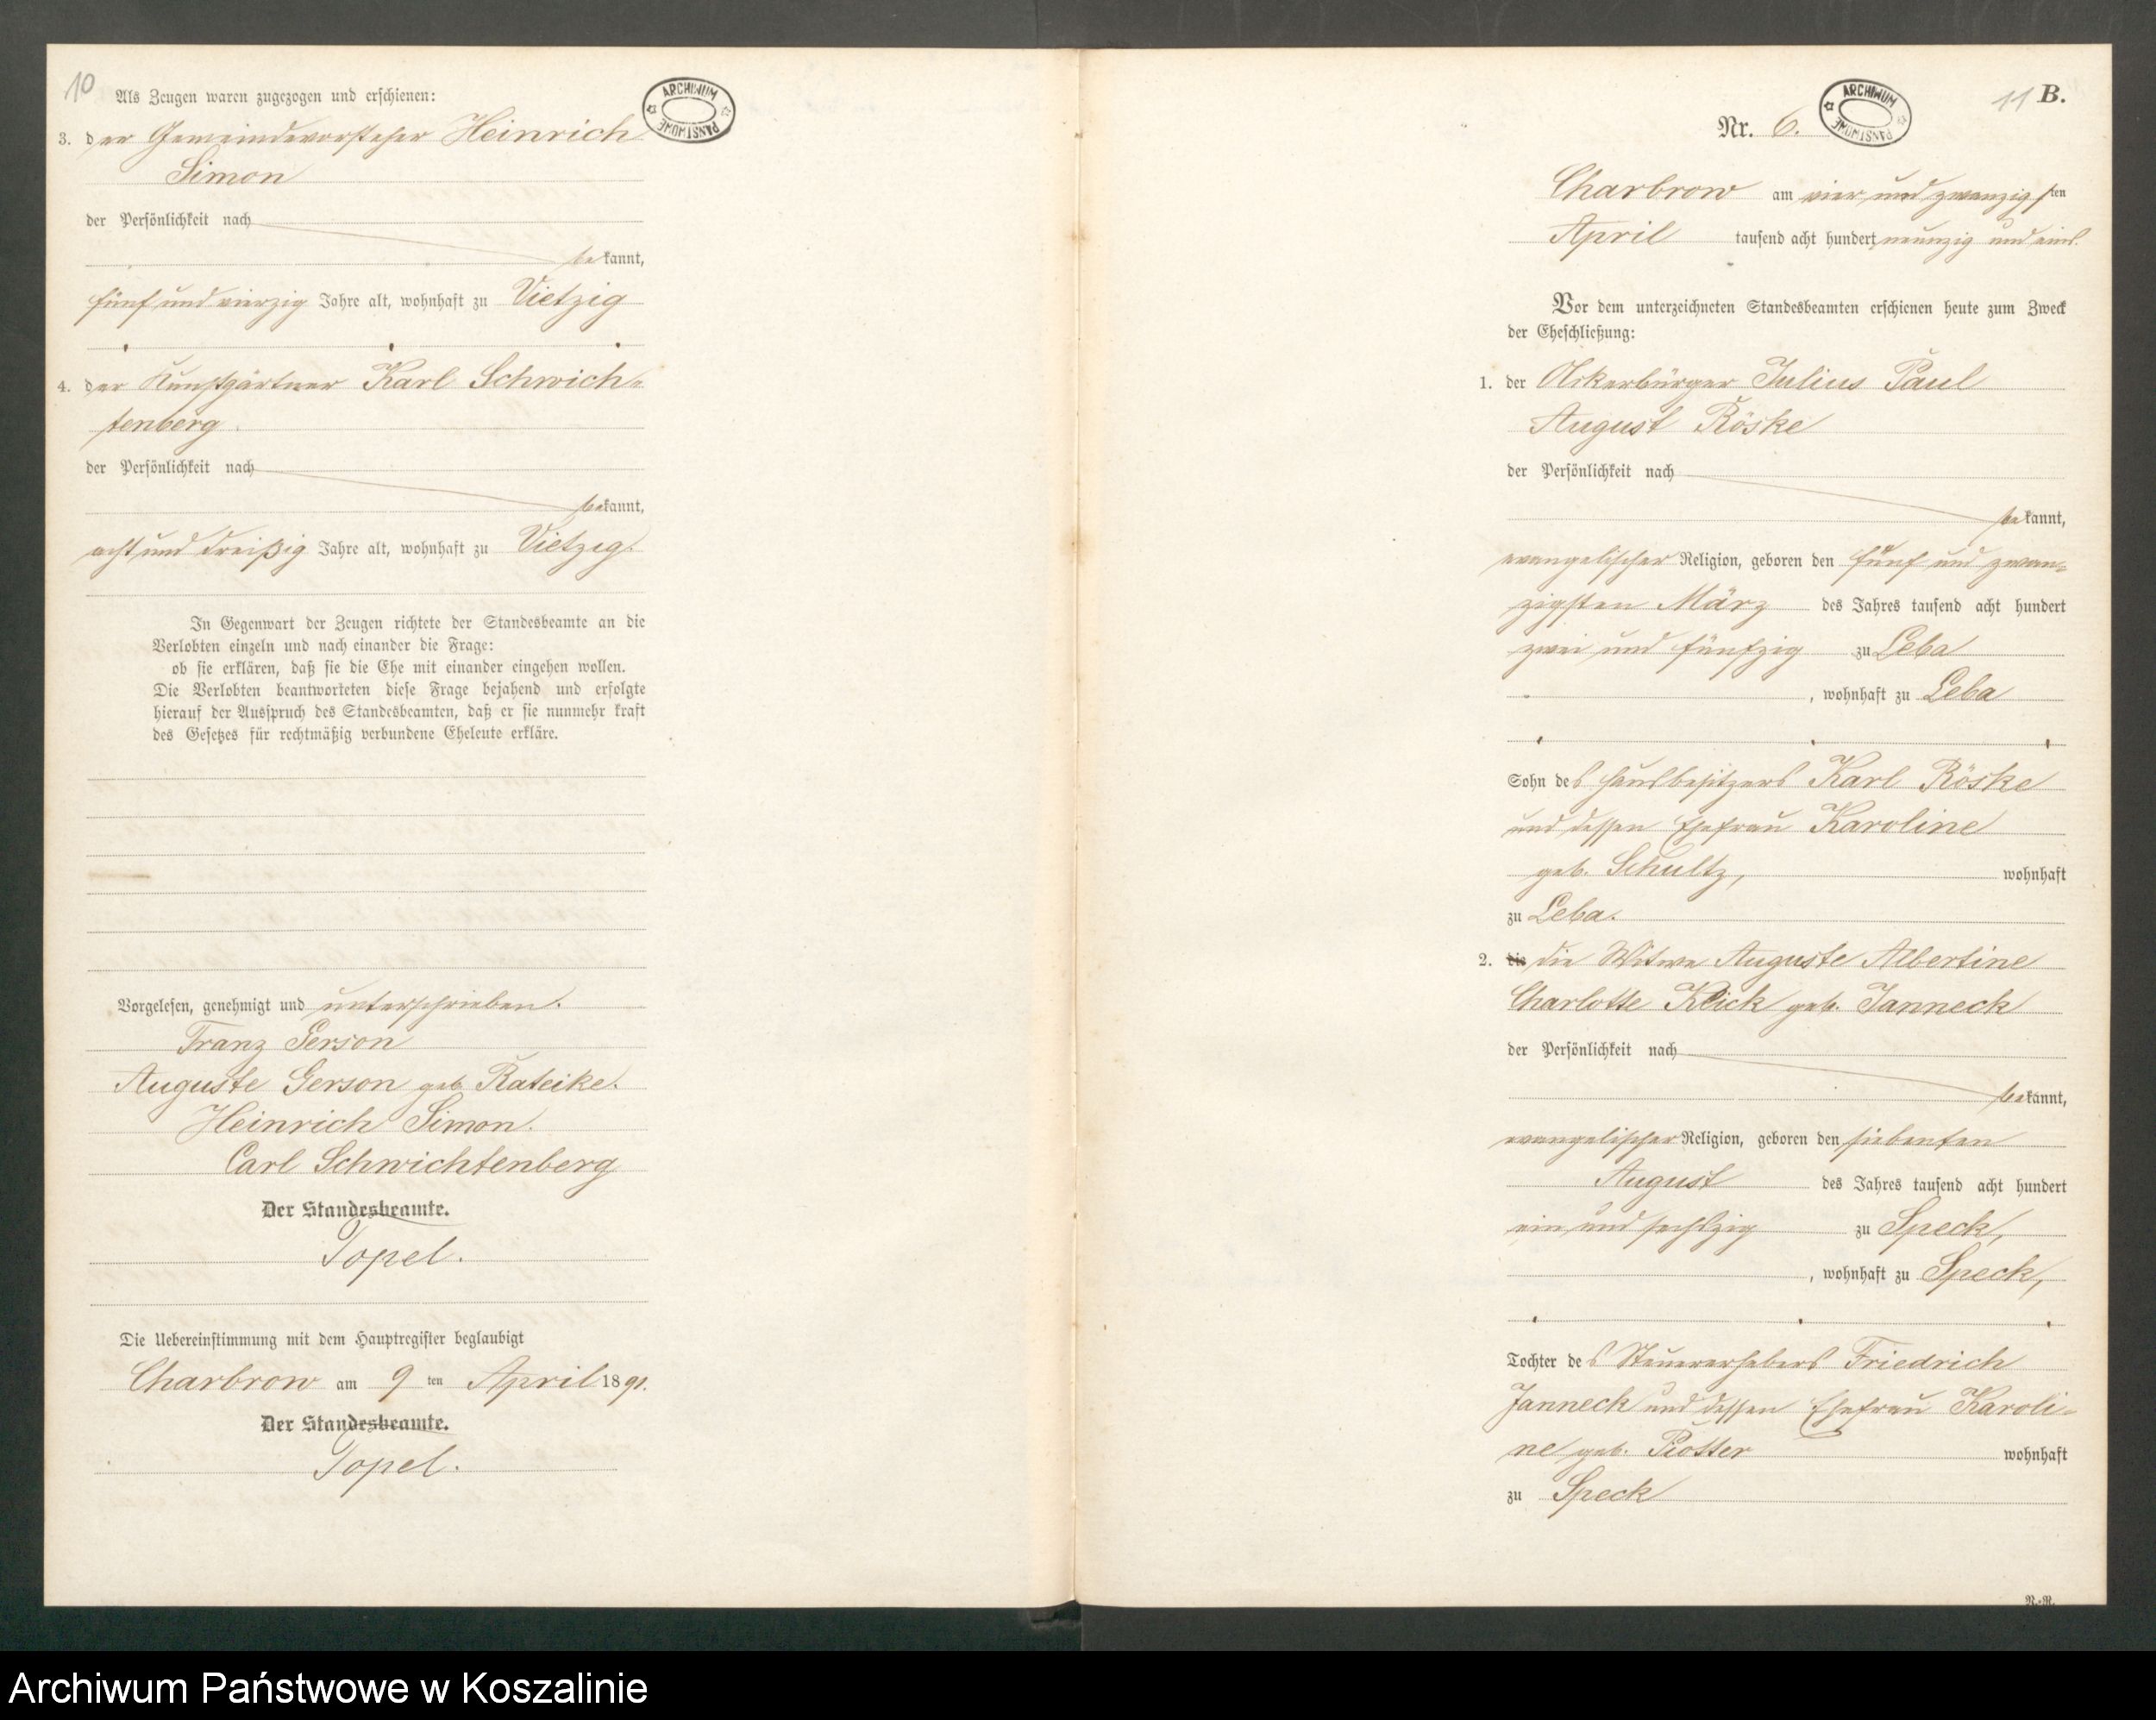 10
Als Zeugen waren zugezogen und erschienen:
ARCHIWUM
PAŃSTWOWE
3. der Gemeindevorsteher Heinrich
Simon
der Persönlichkeit nach
bekannt,
fünf und vierzig Jahre alt, wohnhaft zu Vietzig
4. der Kunstgärtner Karl Schwich-
tenberg.
der Persönlichkeit nach
bekannt,
acht und dreißig Jahre alt, wohnhaft zu Vietzig.
In Gegenwart der Zeugen richtete der Standesbeamte an die
Verlobten einzeln und nach einander die Frage:
ob sie erklären, daß sie die Ehe mit einander eingehen wollen.
Die Verlobten beantworteten diese Frage bejahend und erfolgte
hierauf der Ausspruch des Standesbeamten, daß er sie nunmehr kraft
des Gesetzes für rechtmäßig verbundene Eheleute erkläre.
Vorgelesen, genehmigt und unterschrieben.
Franz Gerson
Auguste Gerson geb. Rateike.
Heinrich Simon.
Carl Schwichtenberg
Der Standesbeamte.
Topel.
Die Uebereinstimmung mit dem Hauptregister beglaubigt
Charbrow am 9 ten April 1891.
Der Standesbeamte.
Topel.
11 B.
ARCHIWUM
PAŃSTWOWE
Nr. 6.
Charbrow am vier und zwanzigsten
April tausend acht hundert neunzig und eins.
Vor dem unterzeichneten Standesbeamten erschienen heute zum Zweck
der Eheschließung:
1. der Ackerbürger Julius Paul
August Röske
der Persönlichkeit nach
bekannt,
evangelischer Religion, geboren den fünf und zwan-
zigsten März des Jahres tausend acht hundert
zwei und fünfzig zu Leba
, wohnhaft zu Leba
Sohn des Hausbesitzers Karl Röske
und dessen Ehefrau Karoline
geb. Schultz, wohnhaft
zu Leba.
2. die die Witwe Auguste Albertine
Charlotte Klick geb. Janneck
der Persönlichkeit nach
bekannt,
evangelischer Religion, geboren den siebenten
August des Jahres tausend acht hundert
ein und sechszig zu Speck,
, wohnhaft zu Speck,
Tochter des Steuererhebers Friedrich
Janneck und dessen Ehefrau Karoli-
ne geb. Piotter wohnhaft
zu Speck
N.-N.
Archiwum Państwowe w Koszalinie